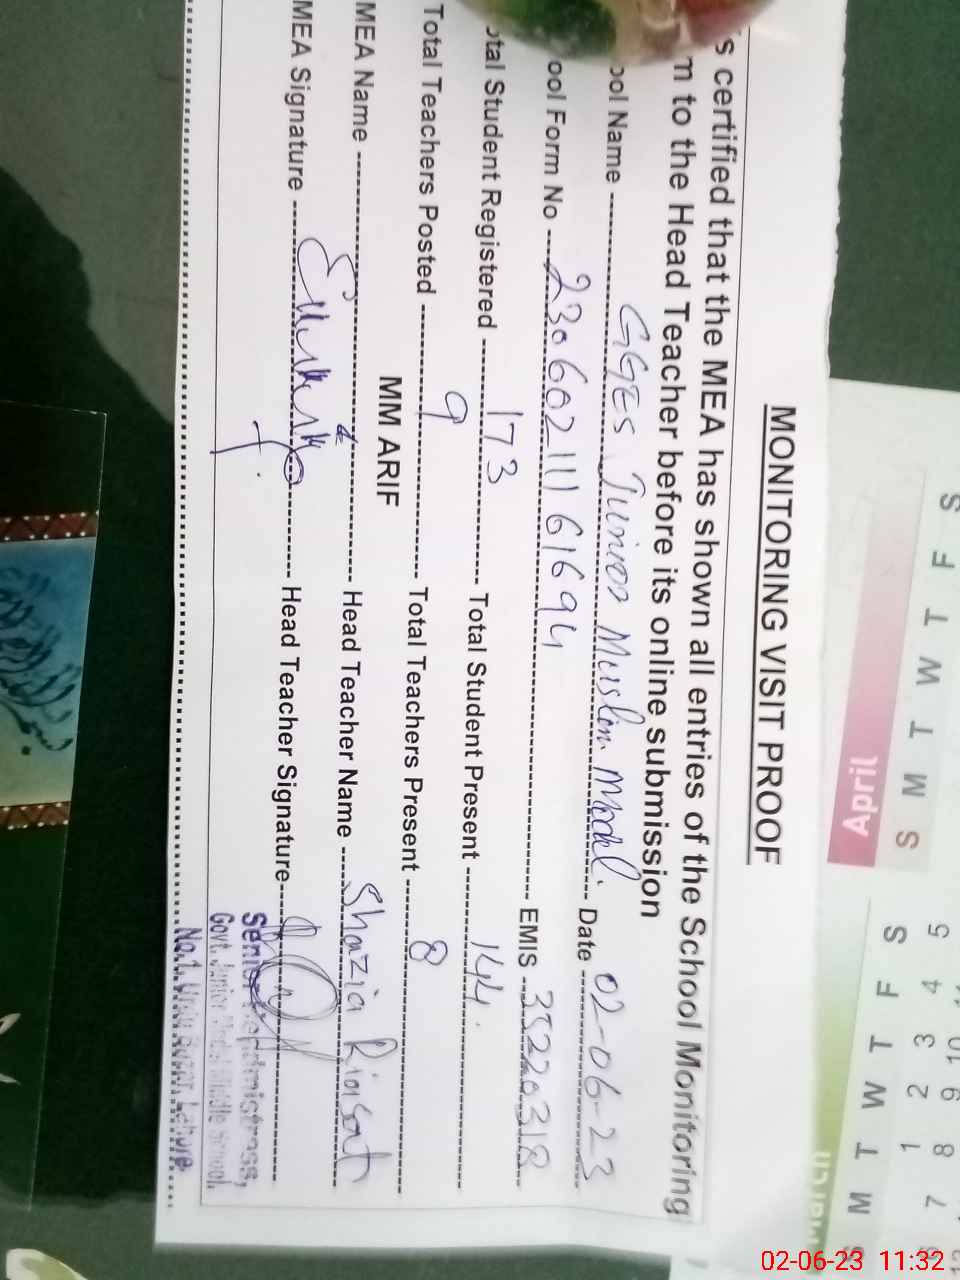 MONITORING VISIT PROOF
s certified that the MEA has shown all entries of the School Monitoring
m to the Head Teacher before its online submission
ool Name GGES Junior Muslim Model. Date 02-06-23
ool Form No 23060211161694 EMIS 35220318
otal Student Registered 173 Total Student Present 144.
Total Teachers Posted 9 Total Teachers Present 8
MM ARIF
MEA Name Head Teacher Name Shazia Riasat
MEA Signature Head Teacher Signature
Senior Headmistress,
Govt. Junior Model Middle School,
No.1, Lahore
April
S M T W T F S
S M T W T F S
1 2 3 4 5
7 8 9 10
02-06-23 11:32